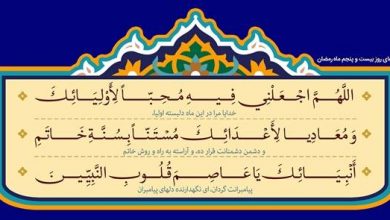 دعای روز بیست و پنجم ماه رمضان
اللَّهُمَّ اجْعَلْنِي فِيهِ مُحِبّاً لِأَوْلِيَائِكَ
خدایا مرا در این ماه دلبسته اولیا،
وَ مُعَادِياً لِأَعْدَائِكَ مُسْتَنّاً بِسُنَّةِ خَاتَمِ
و دشمن دشمنانت قرار ده، و آراسته به راه و روش خاتم
أَنْبِيَائِكَ يَا عَاصِمَ قُلُوبِ النَّبِيِّينَ
پیامبرانت گردان، ای نگهدارنده دلهای پیامبران